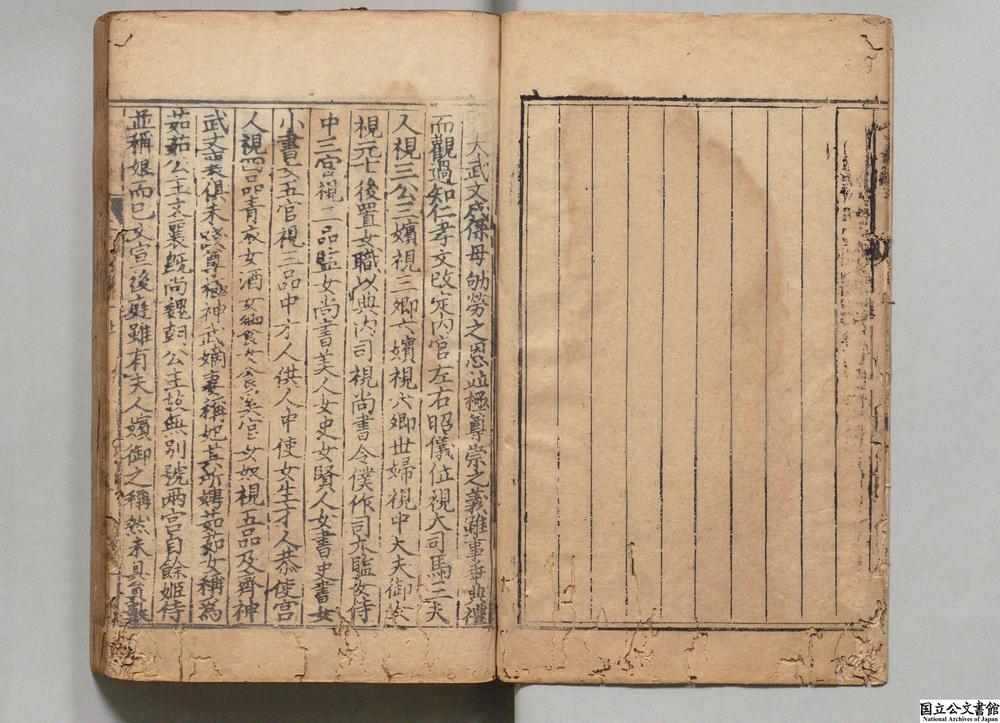 大武文成保母劬勞之恩並極尊崇之義雖事乖典禮
而觀過知仁孝文改定内官左右昭儀位視大司馬三夫
人視三公三嬪視三卿六嬪視六卿世婦視中大夫御女
視元士後置女職以典内司視尚書令僕作司大監女侍
中三官視二品監女尚書美人女史女賢人女書史書女
小書女五官視三品中才人供人中使女生才人恭使宮
人視四品青衣女酒女饗女食奚官女奴視五品及齊神
武文襄俱未踐尊極神武嫡妻稱妃其所娉茹茹女稱爲
茹茹公主文襄既尚魏朝公主故無別號兩宮自餘姬侍
並稱娘而已文宣後庭雖有夫人嬪御之稱然未具員數
国立公文書館
National Archives of Japan